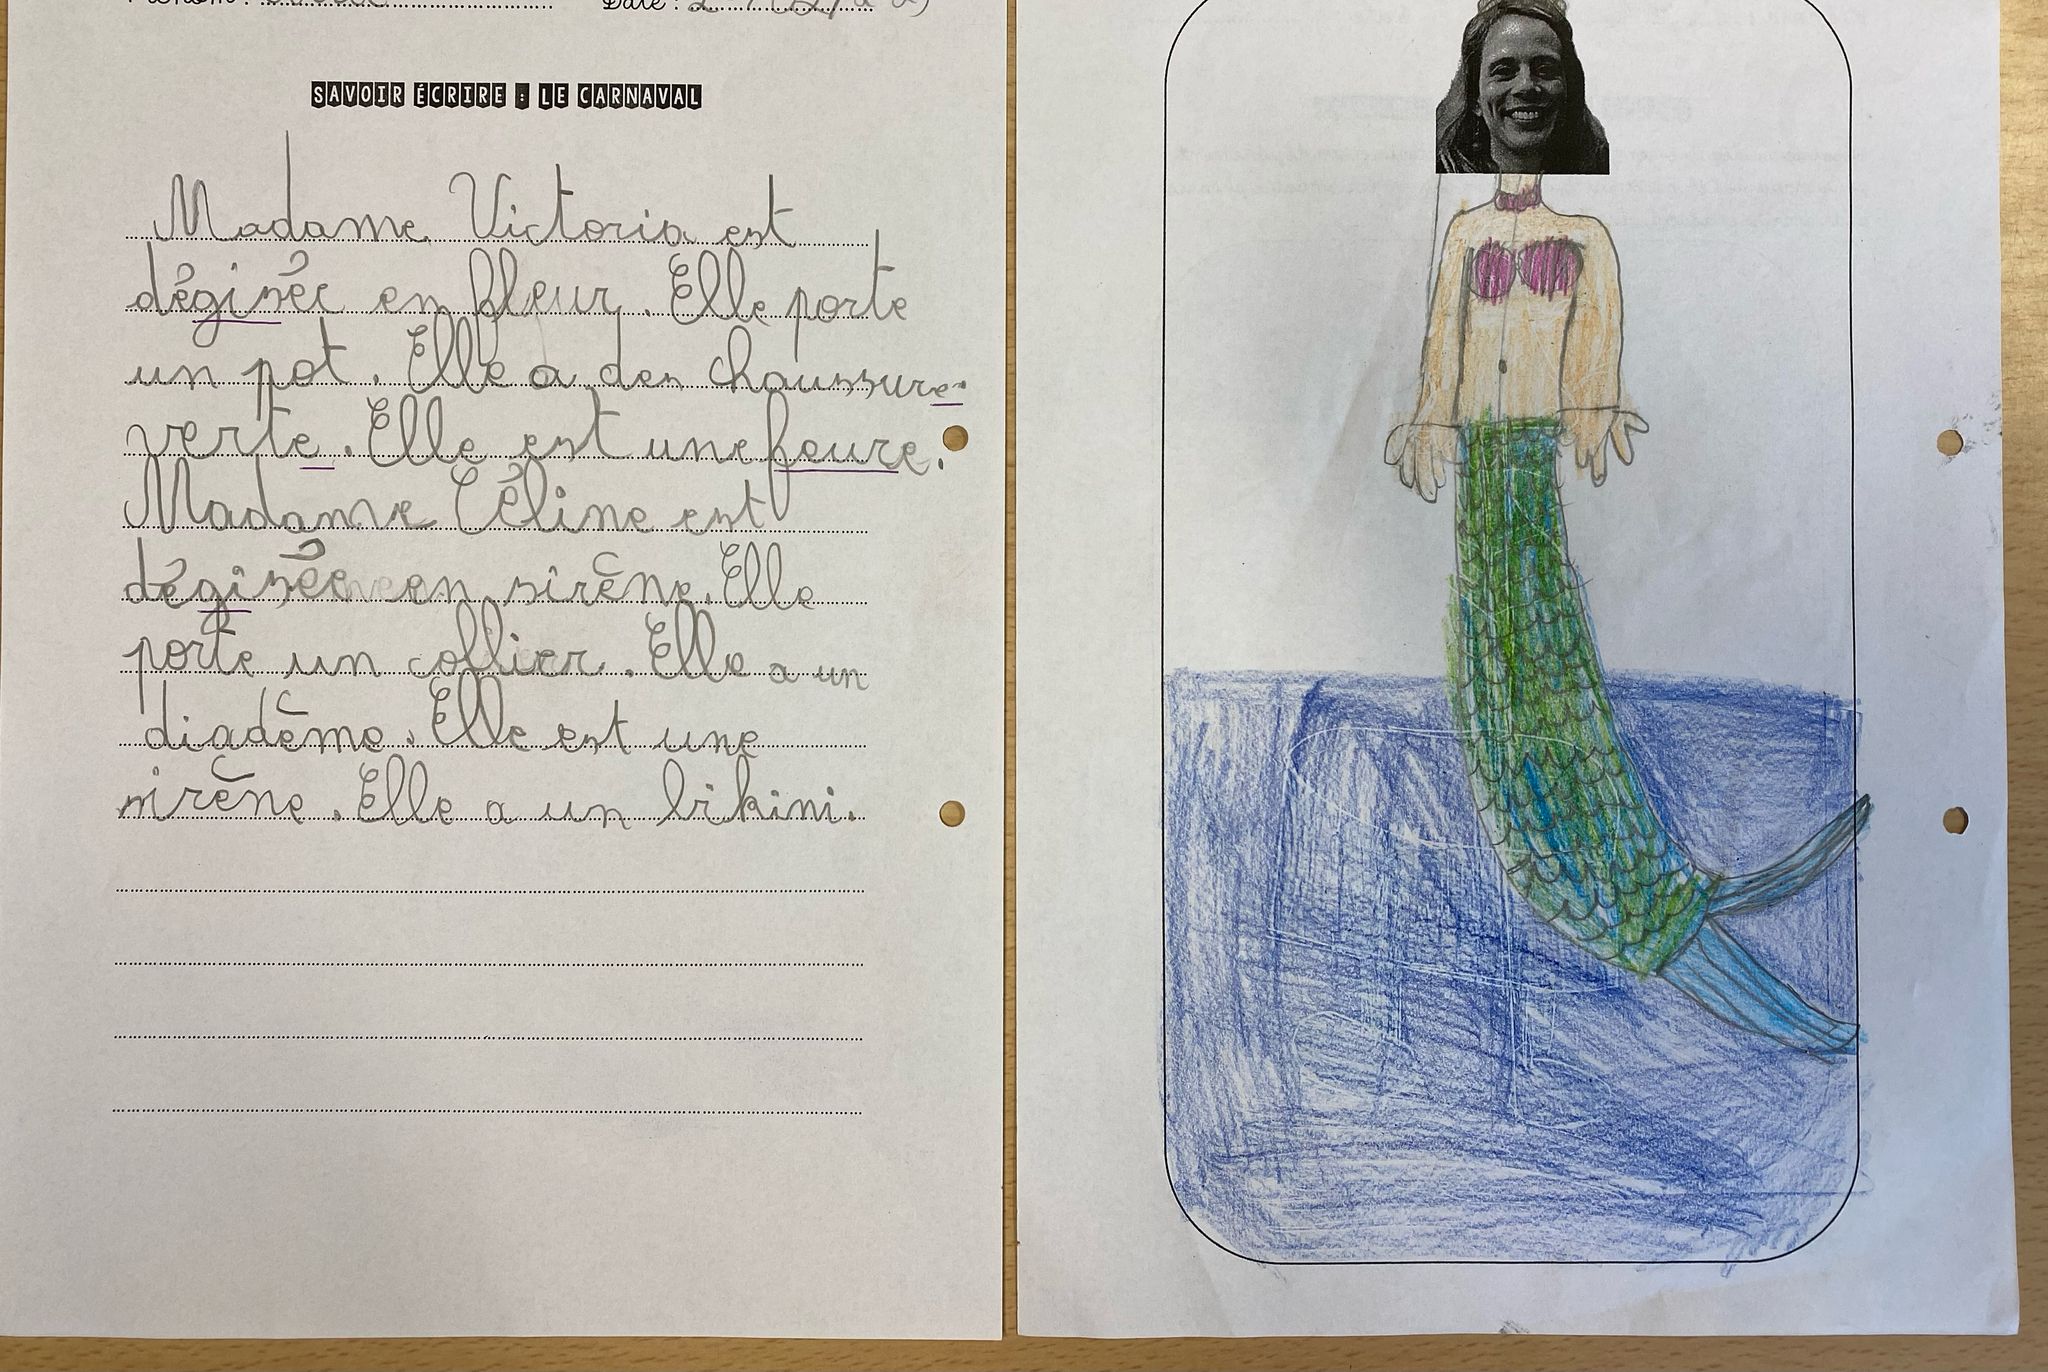 Prénom :
Date :
SAVOIR ÉCRIRE : LE CARNAVAL
Madame Victoria est
dégisée en fleur. Elle porte
un pot. Elle a des chaussure
verte. Elle est une feure.
Madame Céline est
dégisée en sirène. Elle
porte un collier. Elle a un
diadème. Elle est une
sirène. Elle a un bikini.